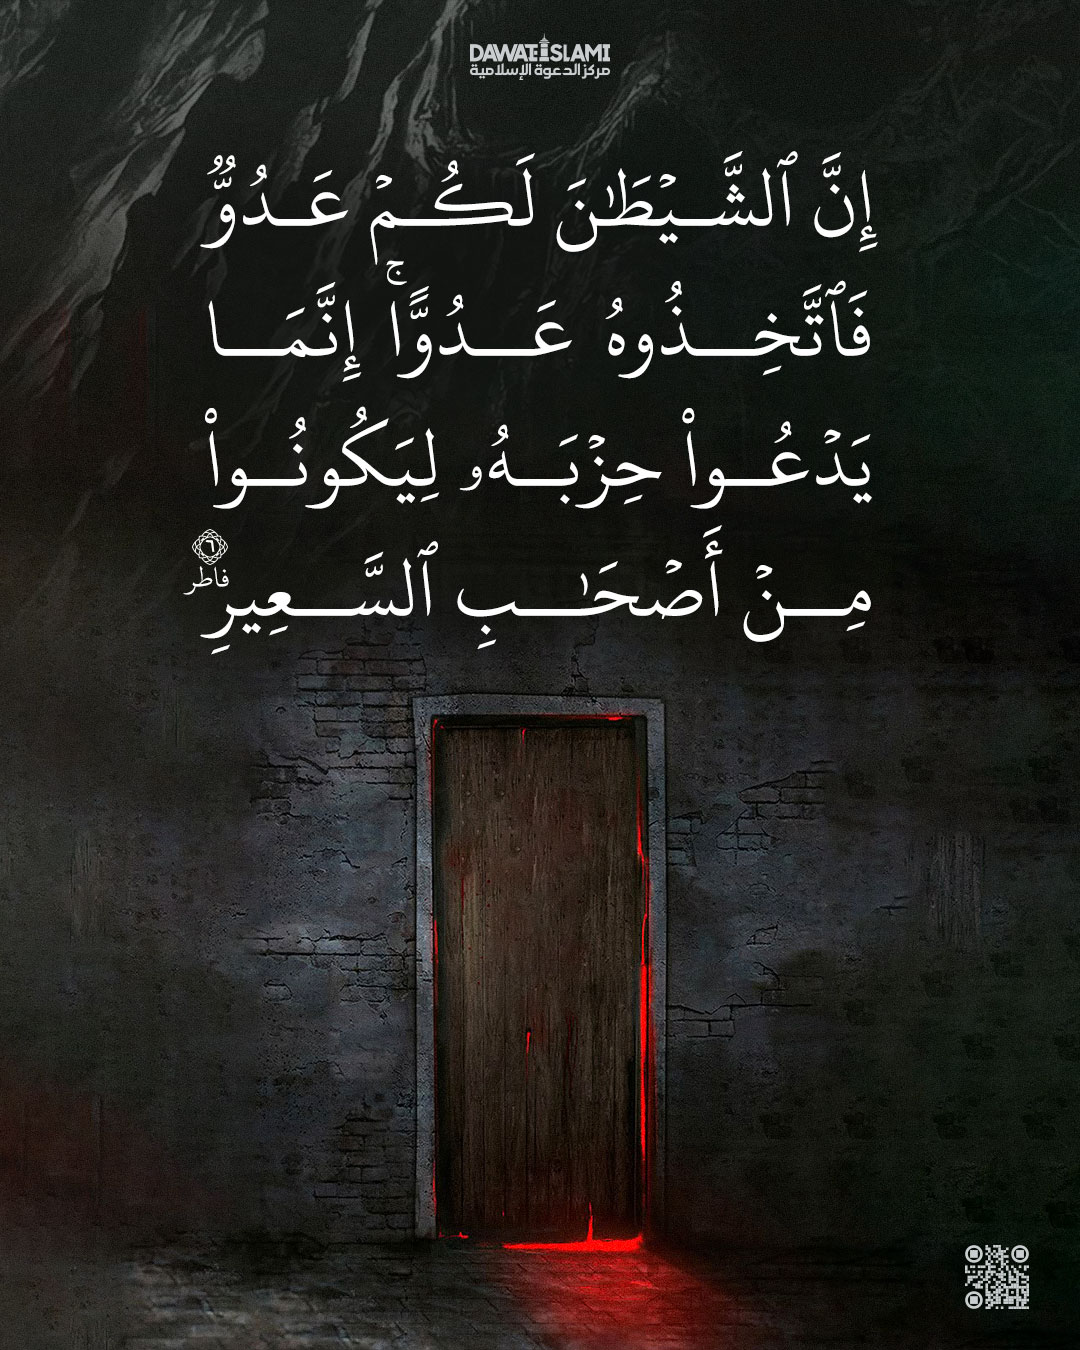 DAWAT-E-ISLAMI
مركز الدعوة الإسلامية
إِنَّ ٱلشَّيْطَٰنَ لَكُمْ عَدُوٌّ
فَٱتَّخِذُوهُ عَدُوًّا ۚ إِنَّمَا
يَدْعُوا۟ حِزْبَهُۥ لِيَكُونُوا۟
مِنْ أَصْحَٰبِ ٱلسَّعِيرِ ٦
فاطر